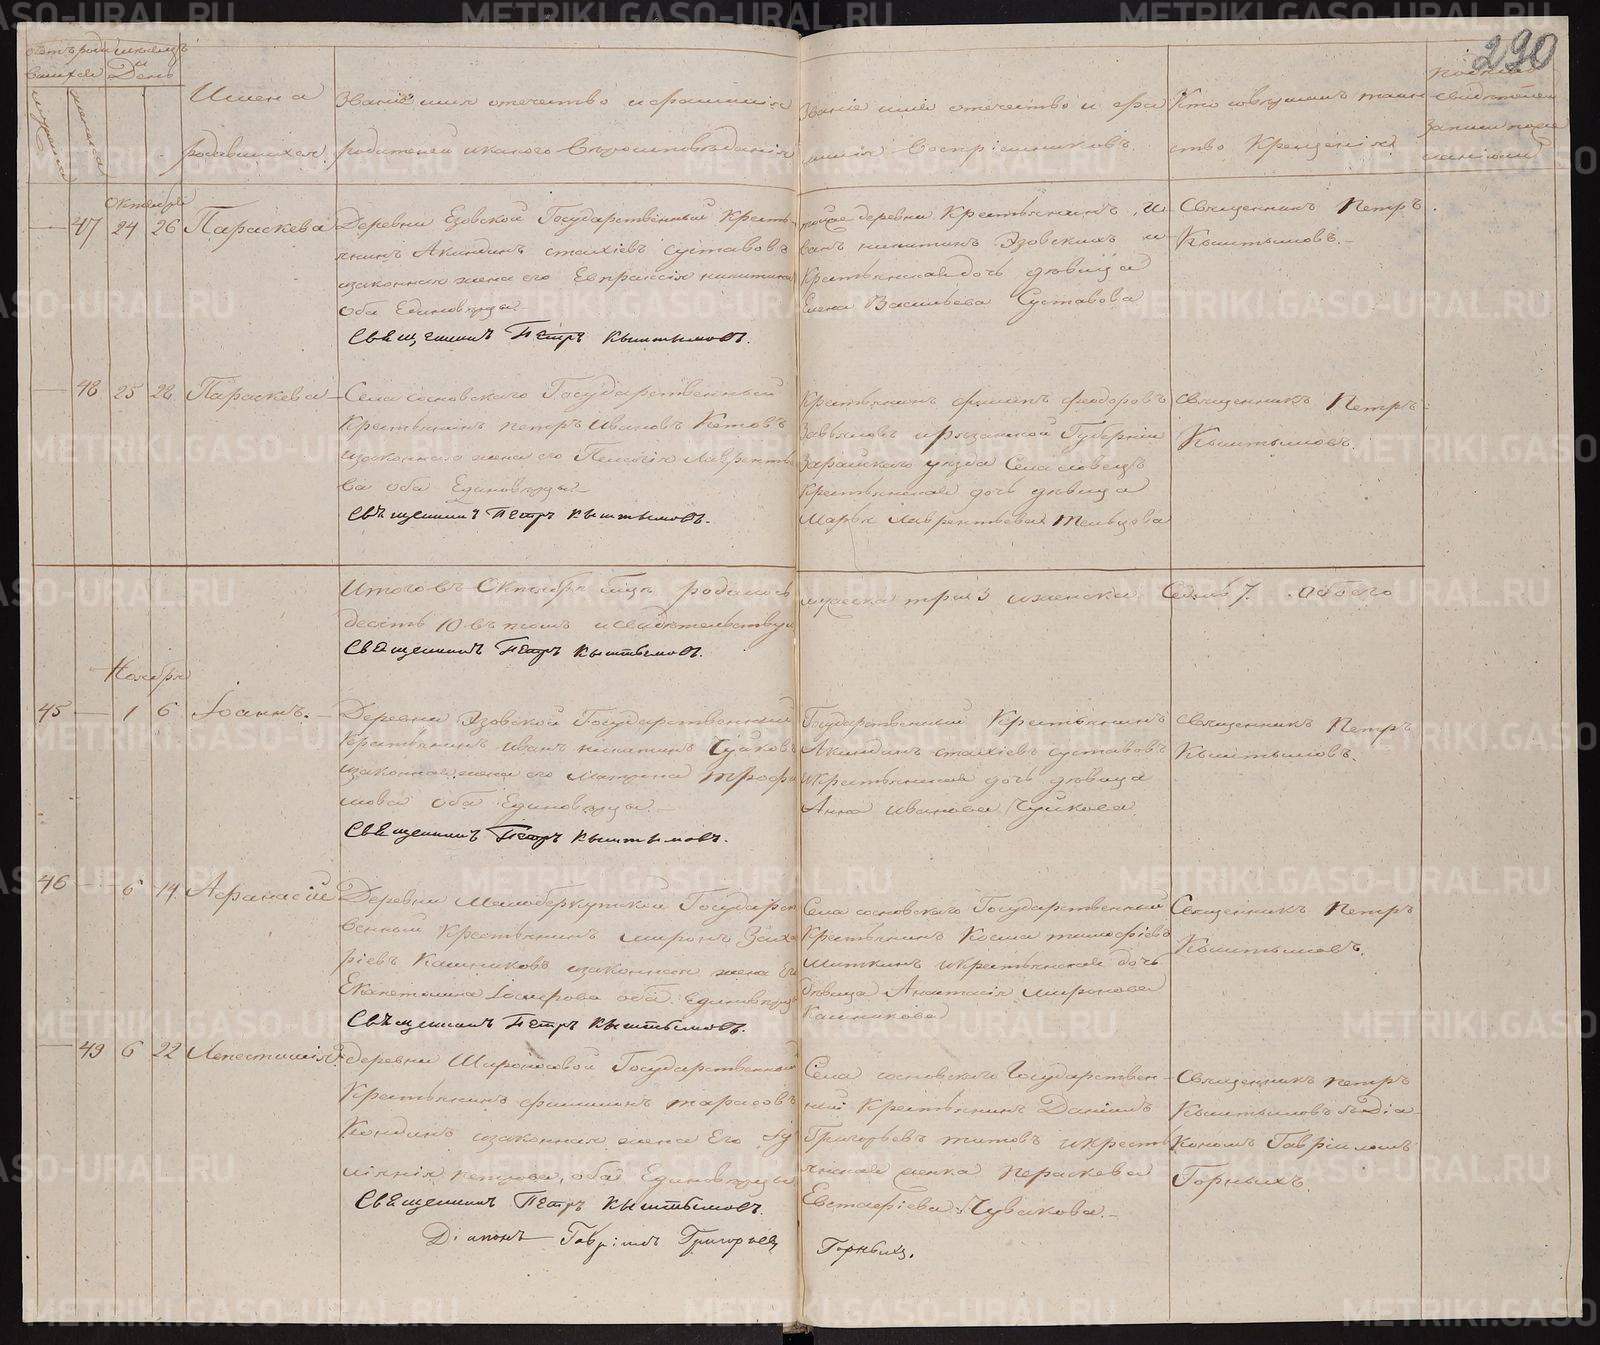 290
Счетъ родившихся
Мѣсяцъ и День
мужска
женска
Имена
родившихся
Званіе имя отечество и фамилія
родителей и какого вѣроисповѣданія
Званіе имя отечество и фа
милія Воспріемниковъ
Кто совершалъ таин
ство Крещенія
Октября
47 24 26 Параскева
Деревни Езовской Государственный Крестья
нинъ Акиндинъ стахіевъ суставовъ
изаконная жена его Евпраксія никитина
оба Единовѣрцы
Священникъ Петръ Кыштымовъ.
тойже деревни Крестьянинъ И
ванъ никитинъ Эзовскихъ и
Крестьянская дочь дѣвица
Елена Васильева Суставова
Священникъ Петръ
Кыштымовъ.
48 25 28 Параскева
Села сосновскаго Государственный
Крестьянинъ петръ Ивановъ Кетовъ
изаконная жена его Пелагія Лаврентье
ва оба Единовѣрцы
Священникъ Петръ Кыштымовъ.
Крестьянинъ филипъ феодоровъ
Завьяловъ ирязанской Губерніи
Зарайскаго уезда Села ловецъ
Крестьянская дочь дѣвица
Марья Лаврентьева Тельцова
Священникъ Петръ
Кыштымовъ.
Итого въ Октябрѣ мцѣ родилось
мужска три 3 иженска Семь 7. Обоего
десять 10. въ чемъ исвидѣтельствую
Священникъ Петръ Кыштымовъ.
Ноября
45 1 6 Іоаннъ.
Деревни Эзовской Государственный
Крестьянинъ иванъ никитинъ Чуйковъ
изаконная жена его Матрона трофи
мова оба Единовѣрцы.
Священникъ Петръ Кыштымовъ.
Государственный Крестьянинъ
Акиндинъ стахіевъ суставовъ
икрестьянская дочь дѣвица
Анна иванова Чуйкова
Священникъ Петръ
Кыштымовъ.
46 6 14 Афанасій
Деревни Малоберкутской Государст
венный Крестьянинъ миронъ Заха
ріевъ Камниковъ изаконная жена Его
Екатерина оба Единовѣрцы
Священникъ Петръ Кыштымовъ.
Села сосновскаго Государственный
Крестьянинъ Косма тимофѣевъ
миткинъ икрестьянская дочь
дѣвица Анастасія миронова
Камникова
Священникъ Петръ
Кыштымовъ.
49 6 22
деревни Широносовой Государственный
Крестьянинъ филимонъ тарасовъ
Кондинъ изаконная жена Его Іу
ліанія петрова, оба Единовѣрцы
Священникъ Петръ Кыштымовъ.
Діаконъ Гавріилъ Григорьевъ
Горныхъ.
Села сосновскаго Государствен
ный Крестьянинъ Даніилъ
Григорьевъ титовъ икресть
янская женка параскева
Евстафіева Чувакова.
Священникъ петръ
Кыштымовъ съ Діа
кономъ Гавріиломъ
Горныхъ.
METRIKI.GASO-URAL.RU